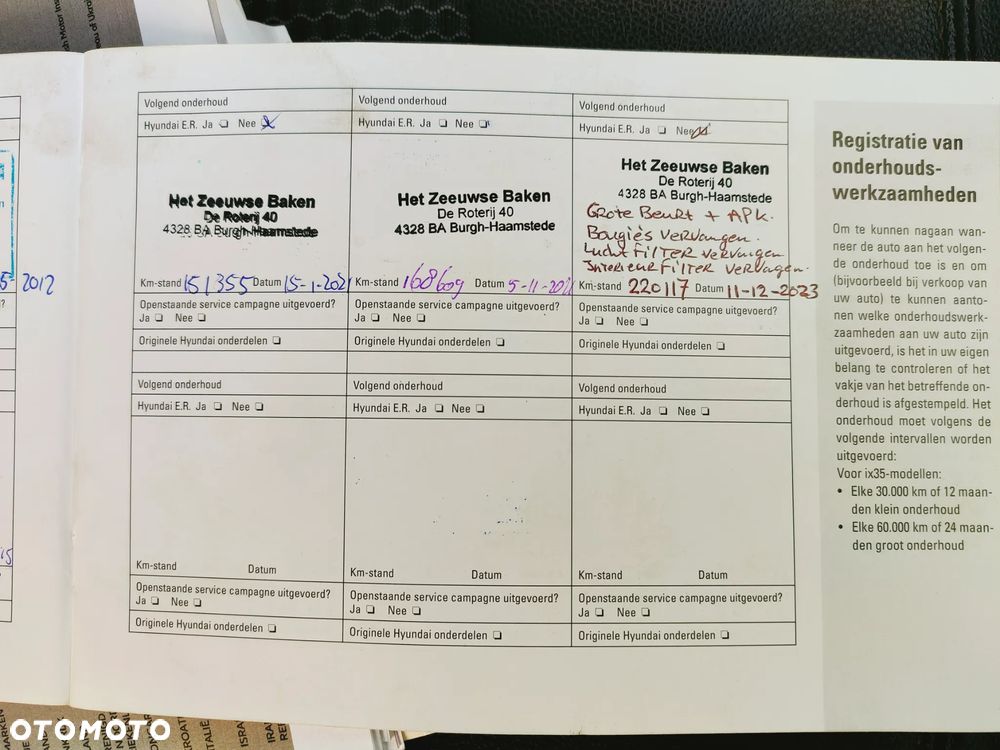 Volgend onderhoud
Hyundai E.R. Ja ❏ Nee ❏
Het Zeeuwse Baken
De Roterij 40
4328 BA Burgh-Haamstede
Km-stand 151355 Datum 15-1-2021
Openstaande service campagne uitgevoerd?
Ja ❏ Nee ❏
Originele Hyundai onderdelen ❏
Volgend onderhoud
Hyundai E.R. Ja ❏ Nee ❏
Het Zeeuwse Baken
De Roterij 40
4328 BA Burgh-Haamstede
Km-stand 168609 Datum 5-11-
Openstaande service campagne uitgevoerd?
Ja ❏ Nee ❏
Originele Hyundai onderdelen ❏
Volgend onderhoud
Hyundai E.R. Ja ❏ Nee
Het Zeeuwse Baken
De Roterij 40
4328 BA Burgh-Haamstede
Grote Beurt + APK.
Bougiès vervangen.
Lucht Filter vervangen
Interieur Filter vervangen.
Km-stand 220117 Datum 11-12-2023
Openstaande service campagne uitgevoerd?
Ja ❏ Nee ❏
Originele Hyundai onderdelen ❏
Volgend onderhoud
Hyundai E.R. Ja ❏ Nee ❏
Km-stand Datum
Openstaande service campagne uitgevoerd?
Ja ❏ Nee ❏
Originele Hyundai onderdelen ❏
Volgend onderhoud
Hyundai E.R. Ja ❏ Nee ❏
Km-stand Datum
Openstaande service campagne uitgevoerd?
Ja ❏ Nee ❏
Originele Hyundai onderdelen ❏
Volgend onderhoud
Hyundai E.R. Ja ❏ Nee ❏
Km-stand Datum
Openstaande service campagne uitgevoerd?
Ja ❏ Nee ❏
Originele Hyundai onderdelen ❏
Registratie van
onderhouds-
werkzaamheden
Om te kunnen nagaan wan-
neer de auto aan het volgen-
de onderhoud toe is en om
(bijvoorbeeld bij verkoop van
uw auto) te kunnen aanto-
nen welke onderhoudswerk-
zaamheden aan uw auto zijn
uitgevoerd, is het in uw eigen
belang te controleren of het
vakje van het betreffende on-
derhoud is afgestempeld. Het
onderhoud moet volgens de
volgende intervallen worden
uitgevoerd:
Voor ix35-modellen:
• Elke 30.000 km of 12 maan-
den klein onderhoud
• Elke 60.000 km of 24 maan-
den groot onderhoud
2012
OTOMOTO